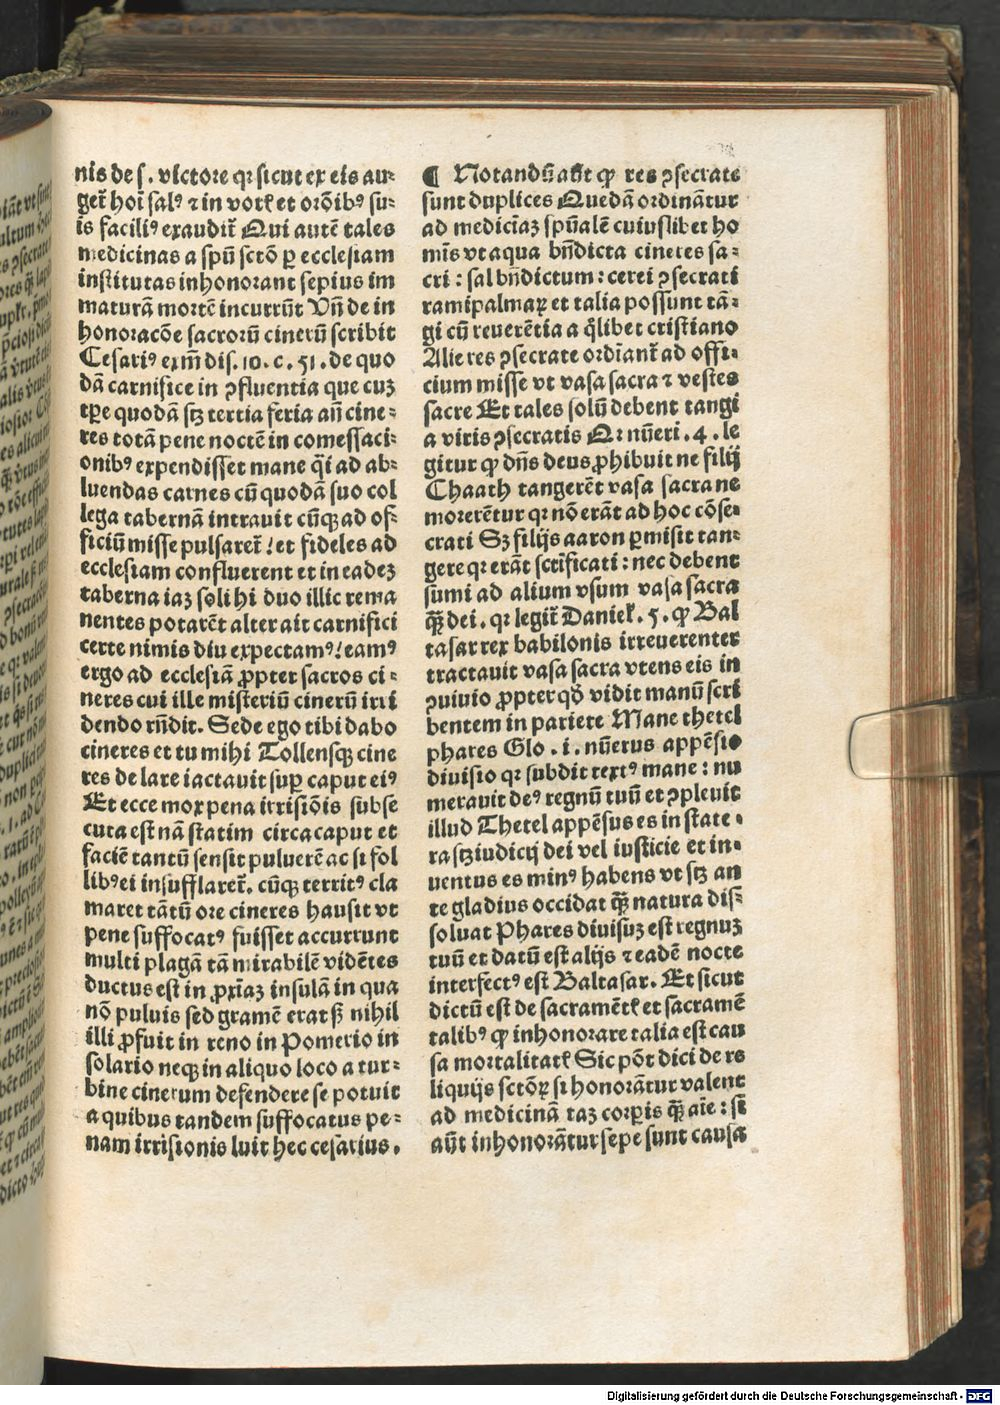 nis de s. victore qꝛ sicut ex eis au⸗
get̃ hoĩ salꝰ ⁊ in vot͛ et oꝛõibꝰ su⸗
is faciliꝰ exaudit̃ Qui autẽ tales
medicinas a spũ sctõ ꝑ ecclesiam
institutas inhonorant sepius im
maturã moꝛtẽ incurrũt Vñ de in
honoracõe sacroꝛũ cinerũ scribit
Cesariꝰ exm̃ dis. 10. c. 51. de quo
dã carnifice in ꝯfluentia que cuꝫ
tꝑe quodã scꝫ tertia feria añ cine⸗
res totã pene noctẽ in comessaci⸗
onibꝰ expendisset mane q̃i ad ab⸗
luendas carnes cũ quodã suo col
lega tabernã intravit cũqꝫ ad of⸗
ficiũ misse pulsaret̃ ! et fideles ad
ecclesiam confluerent et in eadeꝫ
taberna iaꝫ soli hi duo illic rema
nentes potarẽt alter ait carnifici
certe nimis diu expectamꝰ! eamꝰ
ergo ad ecclesiã ꝓpter sacros ci⸗
neres cui ille misteriũ cinerũ irri
dendo rñdit. Sede ego tibi dabo
cineres et tu mihi Tollensqꝫ cine
res de lare iactauit suꝑ caput eiꝰ
Et ecce mox pena irrisiõis subse
cuta est nã statim circa caput et
faciẽ tantũ sensit puluerẽ ac si fol
libꝰ ei insufflaret̃. cũqꝫ territꝰ cla
maret tãtũ ore cineres hausit vt
pene suffocatꝰ fuisset accurrunt
multi plagã tã mirabilẽ vidẽtes
ductus est in ꝓxĩaꝫ insulã in qua
nõ puluis sed gramẽ erat sꝫ nihil
illi ꝓfuit in reno in Pomerio in
solario neqꝫ in aliquo loco a tur⸗
bine cinerum defendere se potuit
a quibus tandem suffocatus pe⸗
nam irrisionis luit hec cesarius.
¶ Notandũ aũt ꝙ res ꝯsecrate
sunt duplices Quedã oꝛdinãtur
ad mediciaꝫ spũalẽ cuiuslibet ho
mĩs vt aqua bñdicta cineres sa⸗
cri : sal bñdictum : cerei ꝯsecrati
rami palmaꝝ et talia possunt tã⸗
gi cũ reuerẽtia a q̃libet cristiano
Alie res ꝯsecrate oꝛdĩant̃ ad offi⸗
cium misse vt vasa sacra ⁊ vestes
sacre Et tales solũ debent tangi
a viris ꝯsecratis Qꝛ nũeri. 4. le
gitur ꝙ dñs deus ꝓhibuit ne filij
Chaath tangerẽt vasa sacra ne
moꝛerẽtur qꝛ nõ erãt ad hoc cõse⸗
crati Sꝫ filijs aaron ꝑmisit tan⸗
gere qꝛ erãt scr̃ificati : nec debent
sumi ad alium vsum vasa sacra
q̃ꝫ dei. qꝛ legit̃ Daniel͛. 5. ꝙ Bal
tasar rex babilonis irreuerenter
tractauit vasa sacra vtens eis in
ꝯuiuio ꝓpter qđ vidit manũ scri
bentem in pariete Mane thetel
phares Glo. i. nũerus appẽsio
diuisio qꝛ subdit textꝰ mane : nu
merauit deꝰ regnũ tuũ et ꝯpleuit
illud Thetel appẽsus es in state⸗
ra scꝫ iudicij dei vel iusticie et in⸗
uentus es minꝰ habens vt scꝫ an
te gladius occidat q̃ꝫ natura dis⸗
soluat Phares diuisuꝫ est regnuꝫ
tuũ et datũ est alijs ⁊ eadẽ nocte
interfectꝰ est Baltasar. Et sicut
dictũ est de sacramẽt͛ et sacramẽ
talibꝰ ꝙ inhonorare talia est cau
sa moꝛtalitat͛ Sic põt dici de re
liquijs sctõꝝ si honorãtur valent
ad medicinã taꝫ coꝛꝑis q̃ꝫ aĩe : sĩ
aũt inhonorãtur sepe sunt causa
Digitalisierung gefördert durch die Deutsche Forschungsgemeinschaft - DFG